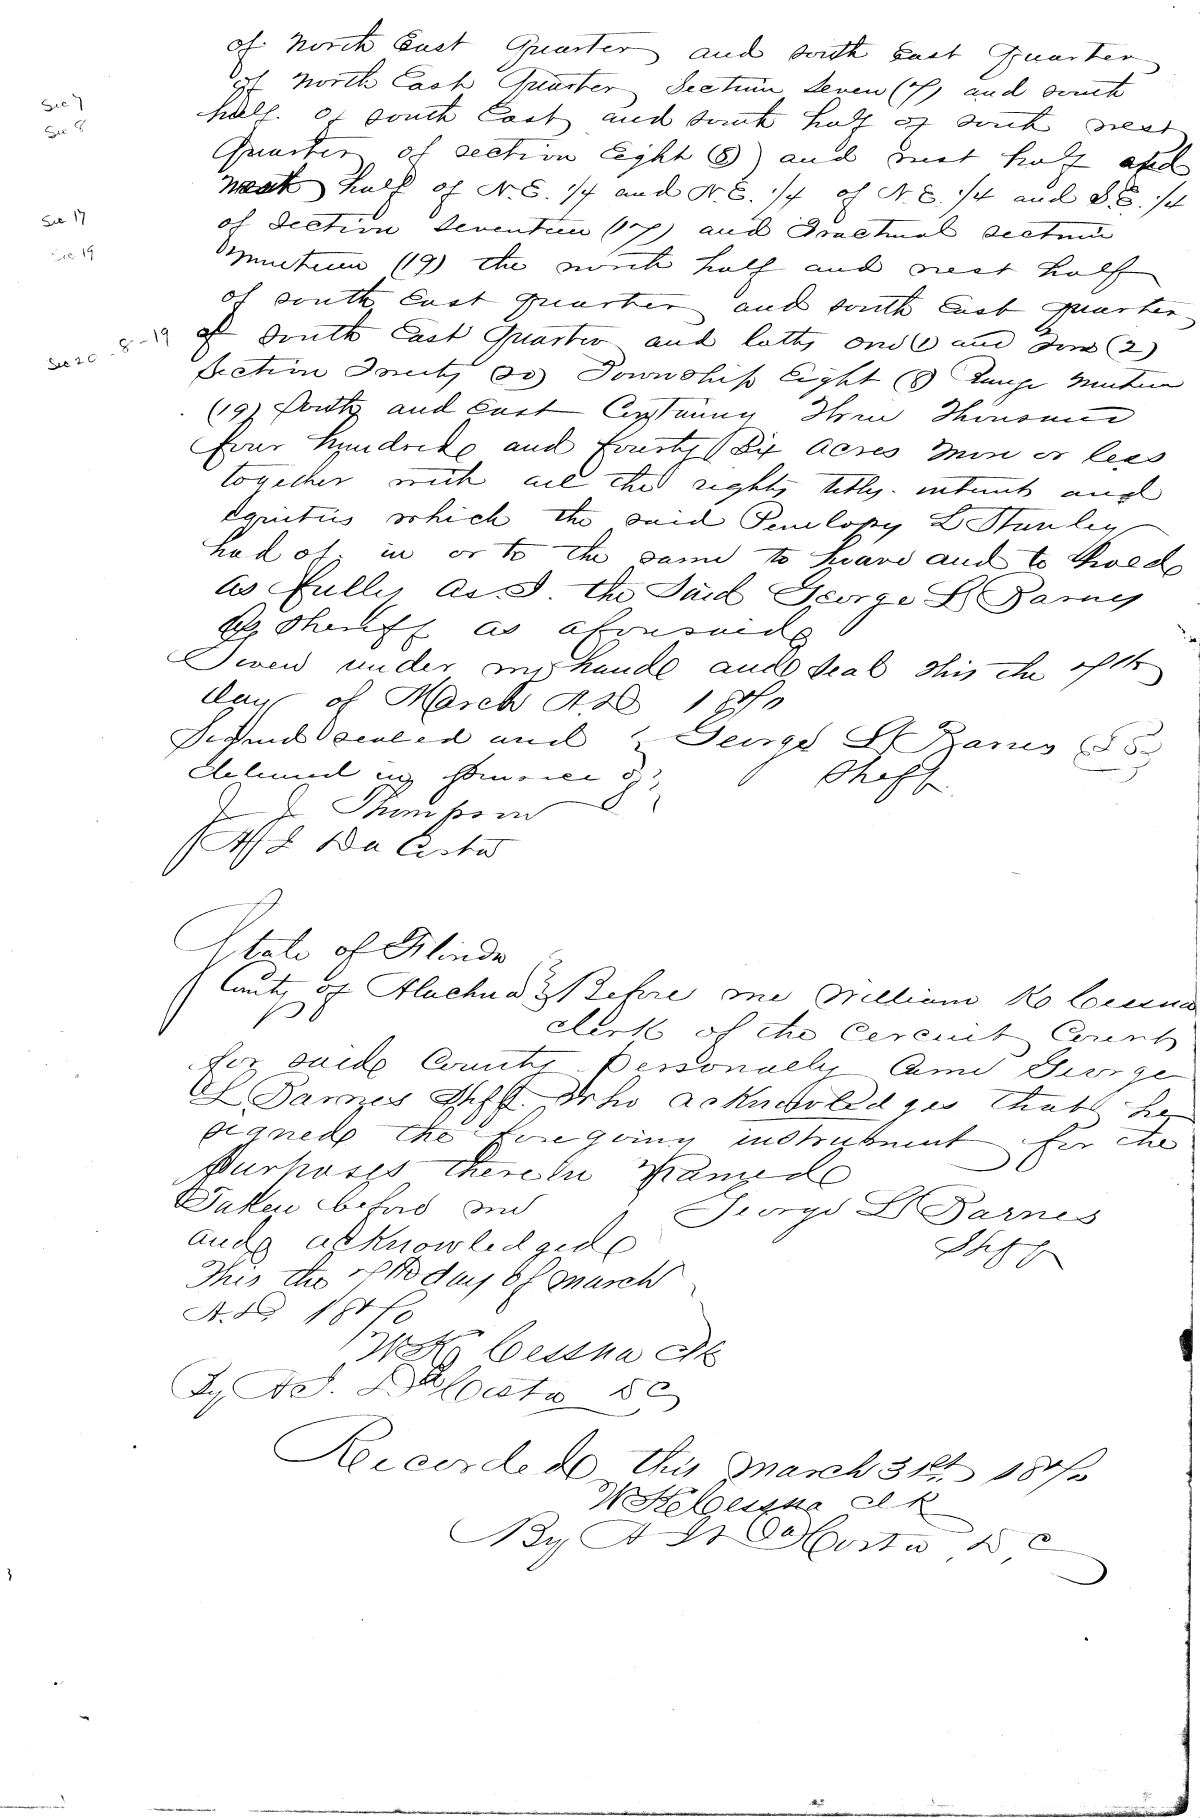 of North East Quarter and South East Quarter
of North East Quarter Section Seven (7) and South
Sec 7
half of South East and South half of South West
Sec 8
Quarter of Section Eight (8) and West half and
West half of N.E. 1/4 and N.E. 1/4 of N.E. 1/4 and S.E. 1/4
Sec 17
of Section Seventeen (17) and Fractional Section
Sec 19
Nineteen (19) the north half and West half
of South East quarter and South East quarter
of South East Quarter and lotts one (1) and Two (2)
Sec 20 - 8 - 19
Section Twenty (20) Township Eight (8) Range Nineteen
(19) South and East Containing Three Thousand
four hundred and fourty Six acres more or less
together with all the rights titles interests and
equities which the said Penelopy L Stanley
had of in or to the same to have and to hold
as fully as I the Said George L Barnes
as Sheriff as aforesaid
Given under my hand and seal this the 7th
day of March A.D 1870
Signed sealed and George L Barnes (L S)
delivered in presence of Sheff
J J Thompson
A J Da Costa
State of Florida
County of Alachua Before me William K Cessna
clerk of the Cercuit Court
for said County personally Came George
L Barnes Shff. Who acknowledges that he
signed the foregoing instrument for the
purposes therein Named
Taken before me George L Barnes
and acknowledged Shff
This the 7th day of March
A.D. 1870
W K Cessna Clk
By A J. Da Costa D C
Recorded this March 31st 1870
W K Cessna Clk
By A J Da Costa D, C